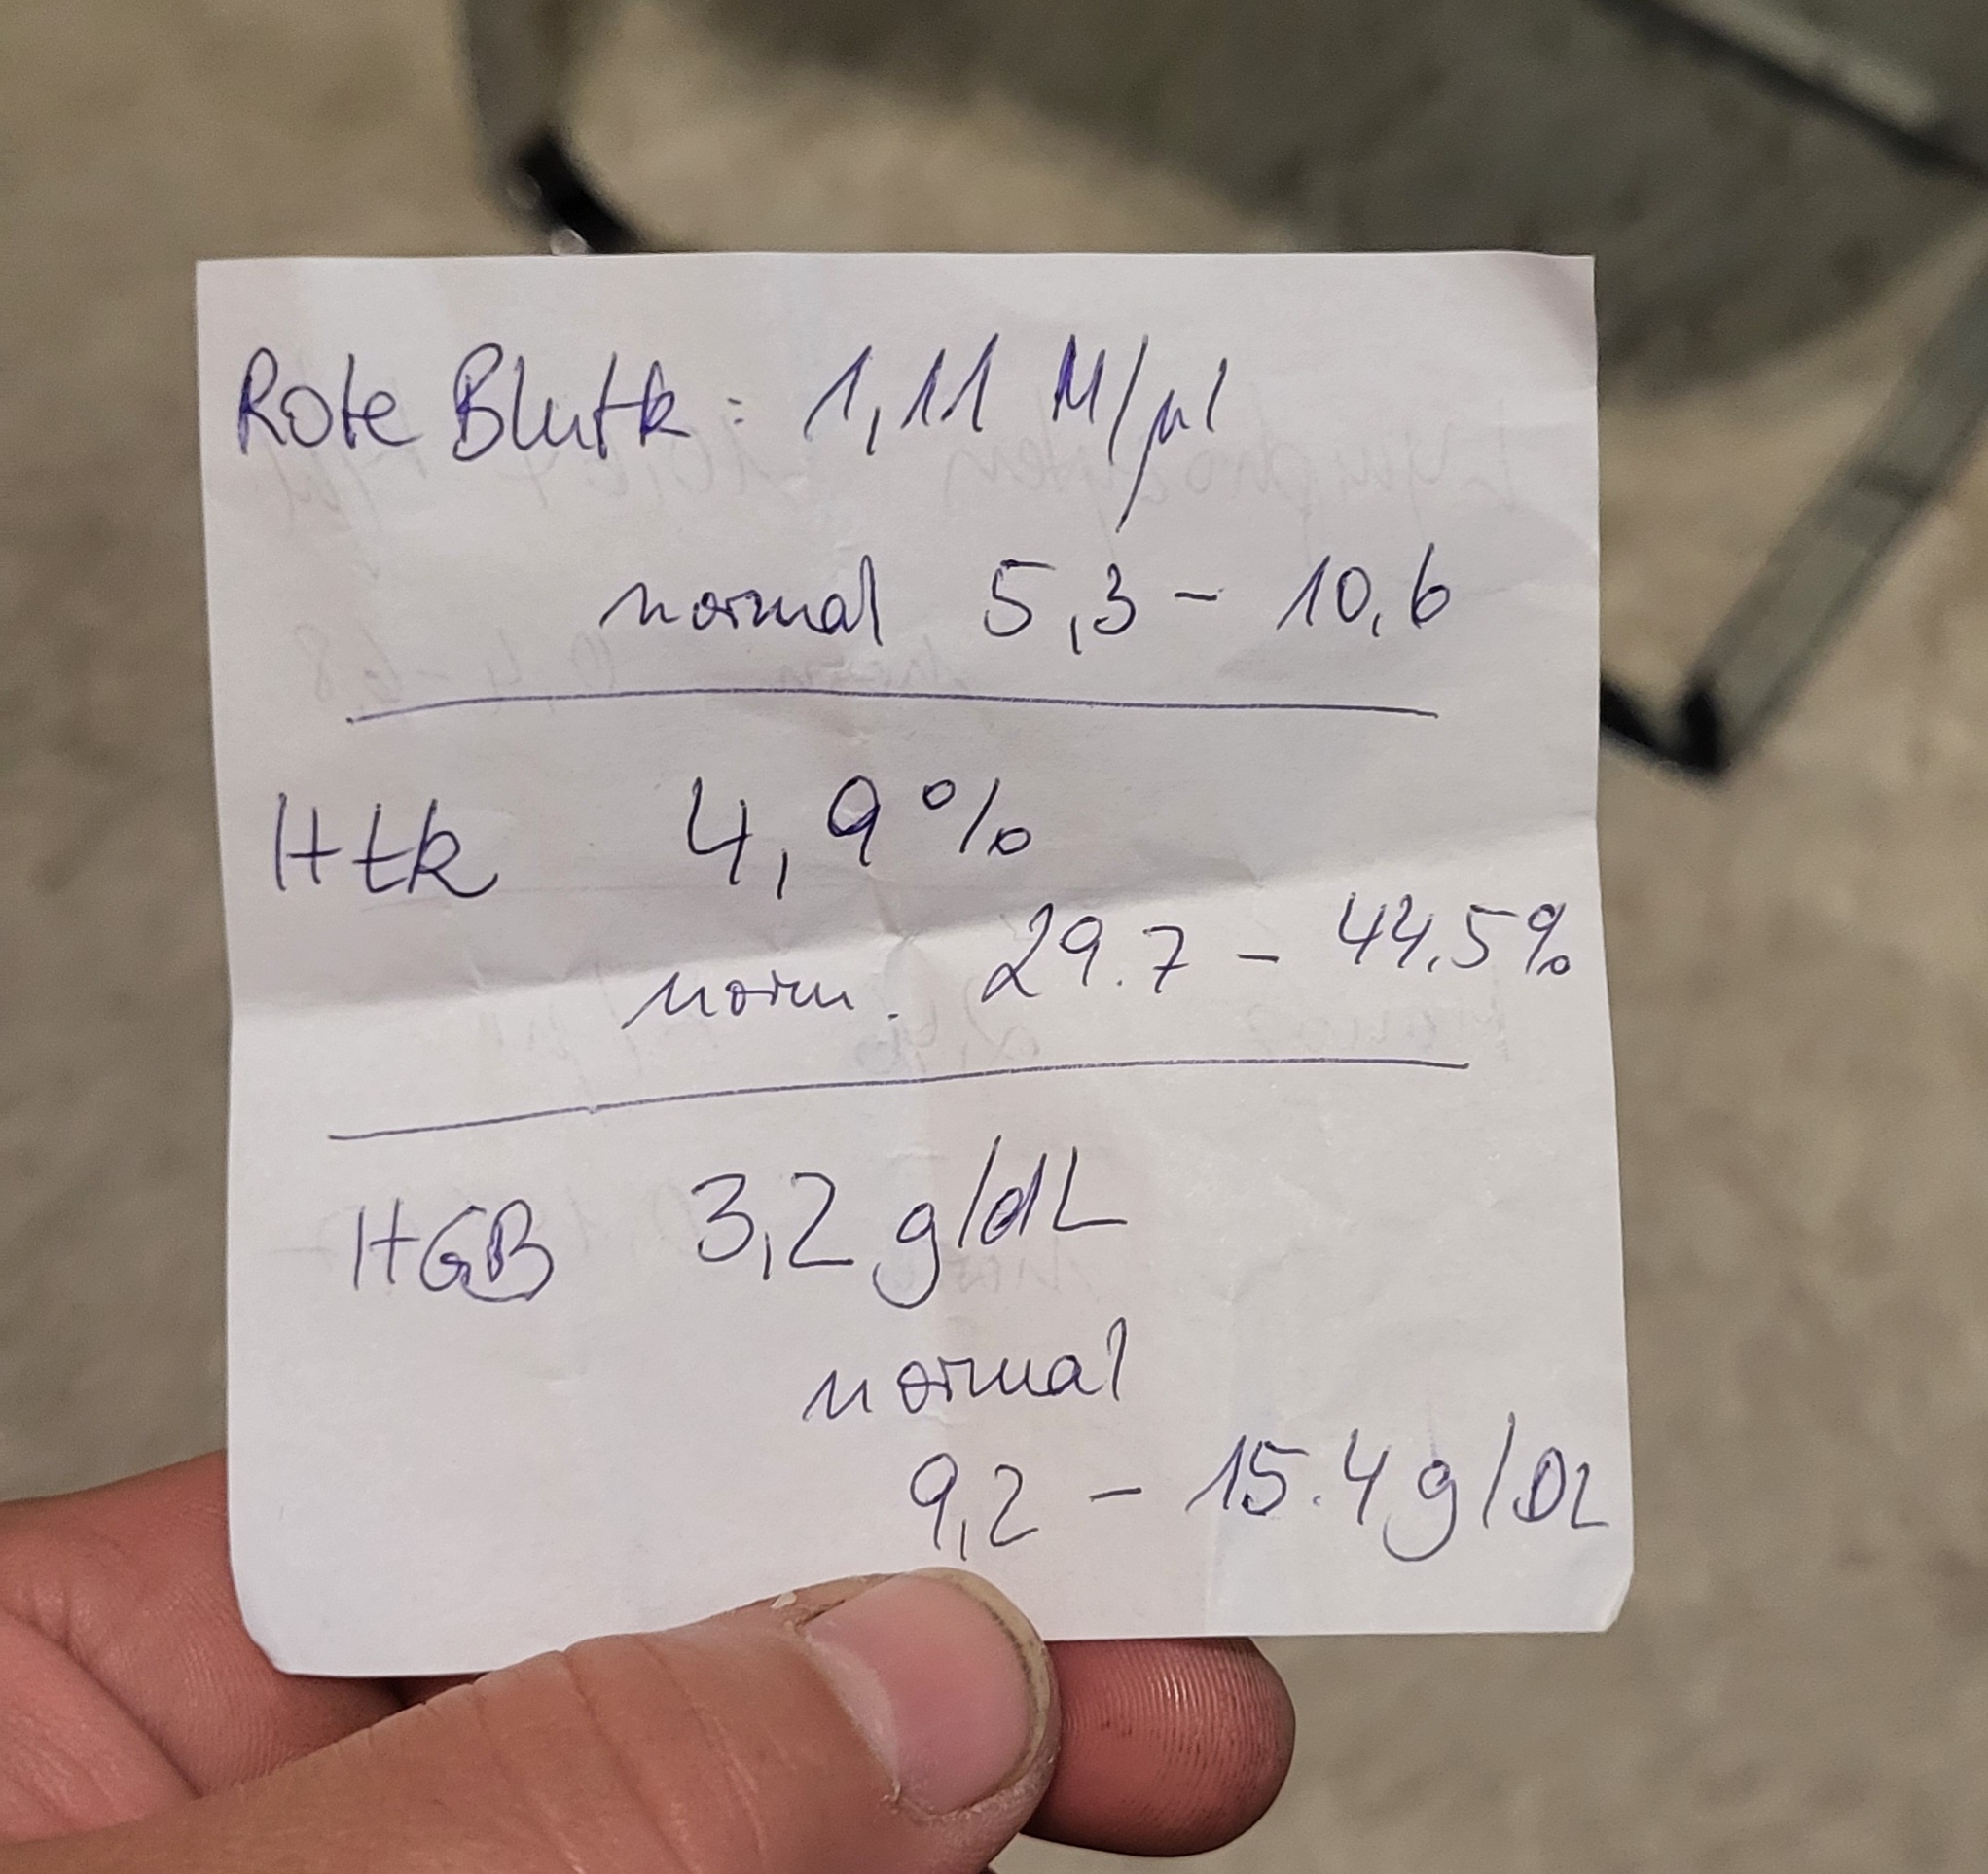 Rote Blutk: 1,11 M/µl
normal 5,3 - 10,6
Htk 4,9 %
norm. 29.7 - 44.5%
HGB 3,2 g/dL
normal
9,2 - 15.4 g/DL